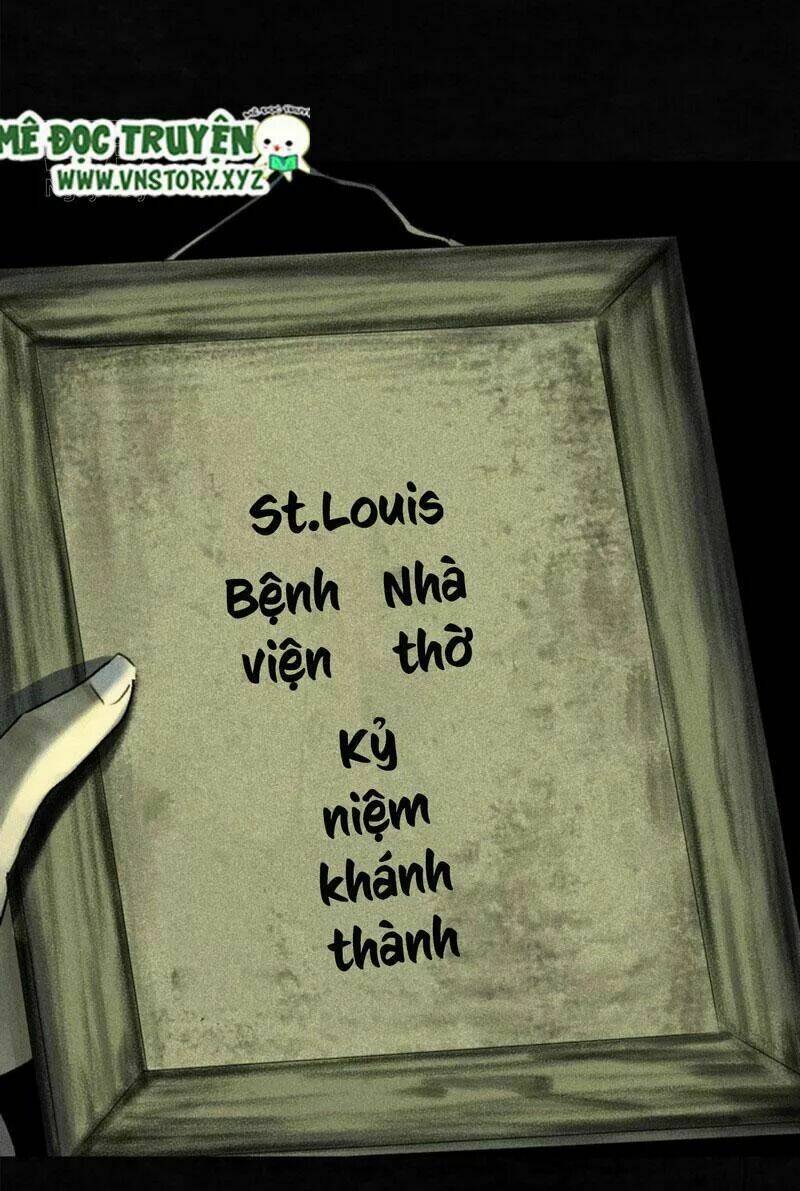 MÊ ĐỌC TRUYỆN
MÊ ĐỌC TRUYỆN
WWW.VNSTORY.XYZ
St.Louis
Bệnh Nhà
viện thờ
Kỷ
niệm
khánh
thành